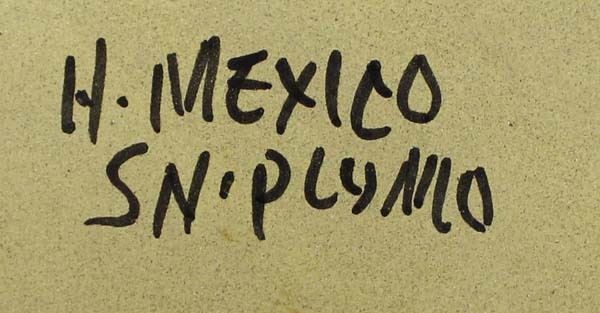 H. MEXICO
SN. PLYMO